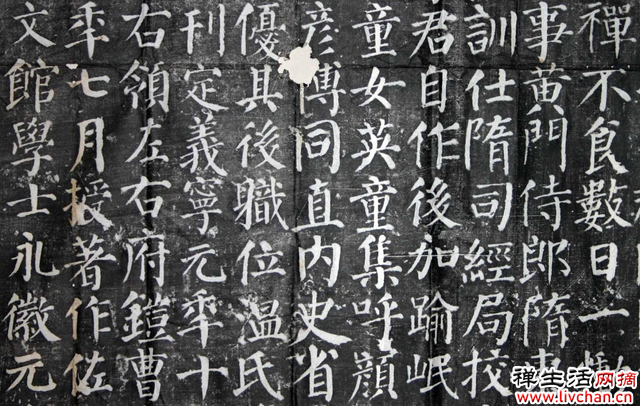 禪不食數日一
事黃門侍郎隋東
訓仕隋司經局挍
君自作後加踰岷
童女英童集呼顏
彥博同直內史省
優其後職位溫氏
刊定義寧元年十
右領左右府鎧曹
年七月授著作佐
文館學士永徽元
禪生活网摘
www.livchan.cn